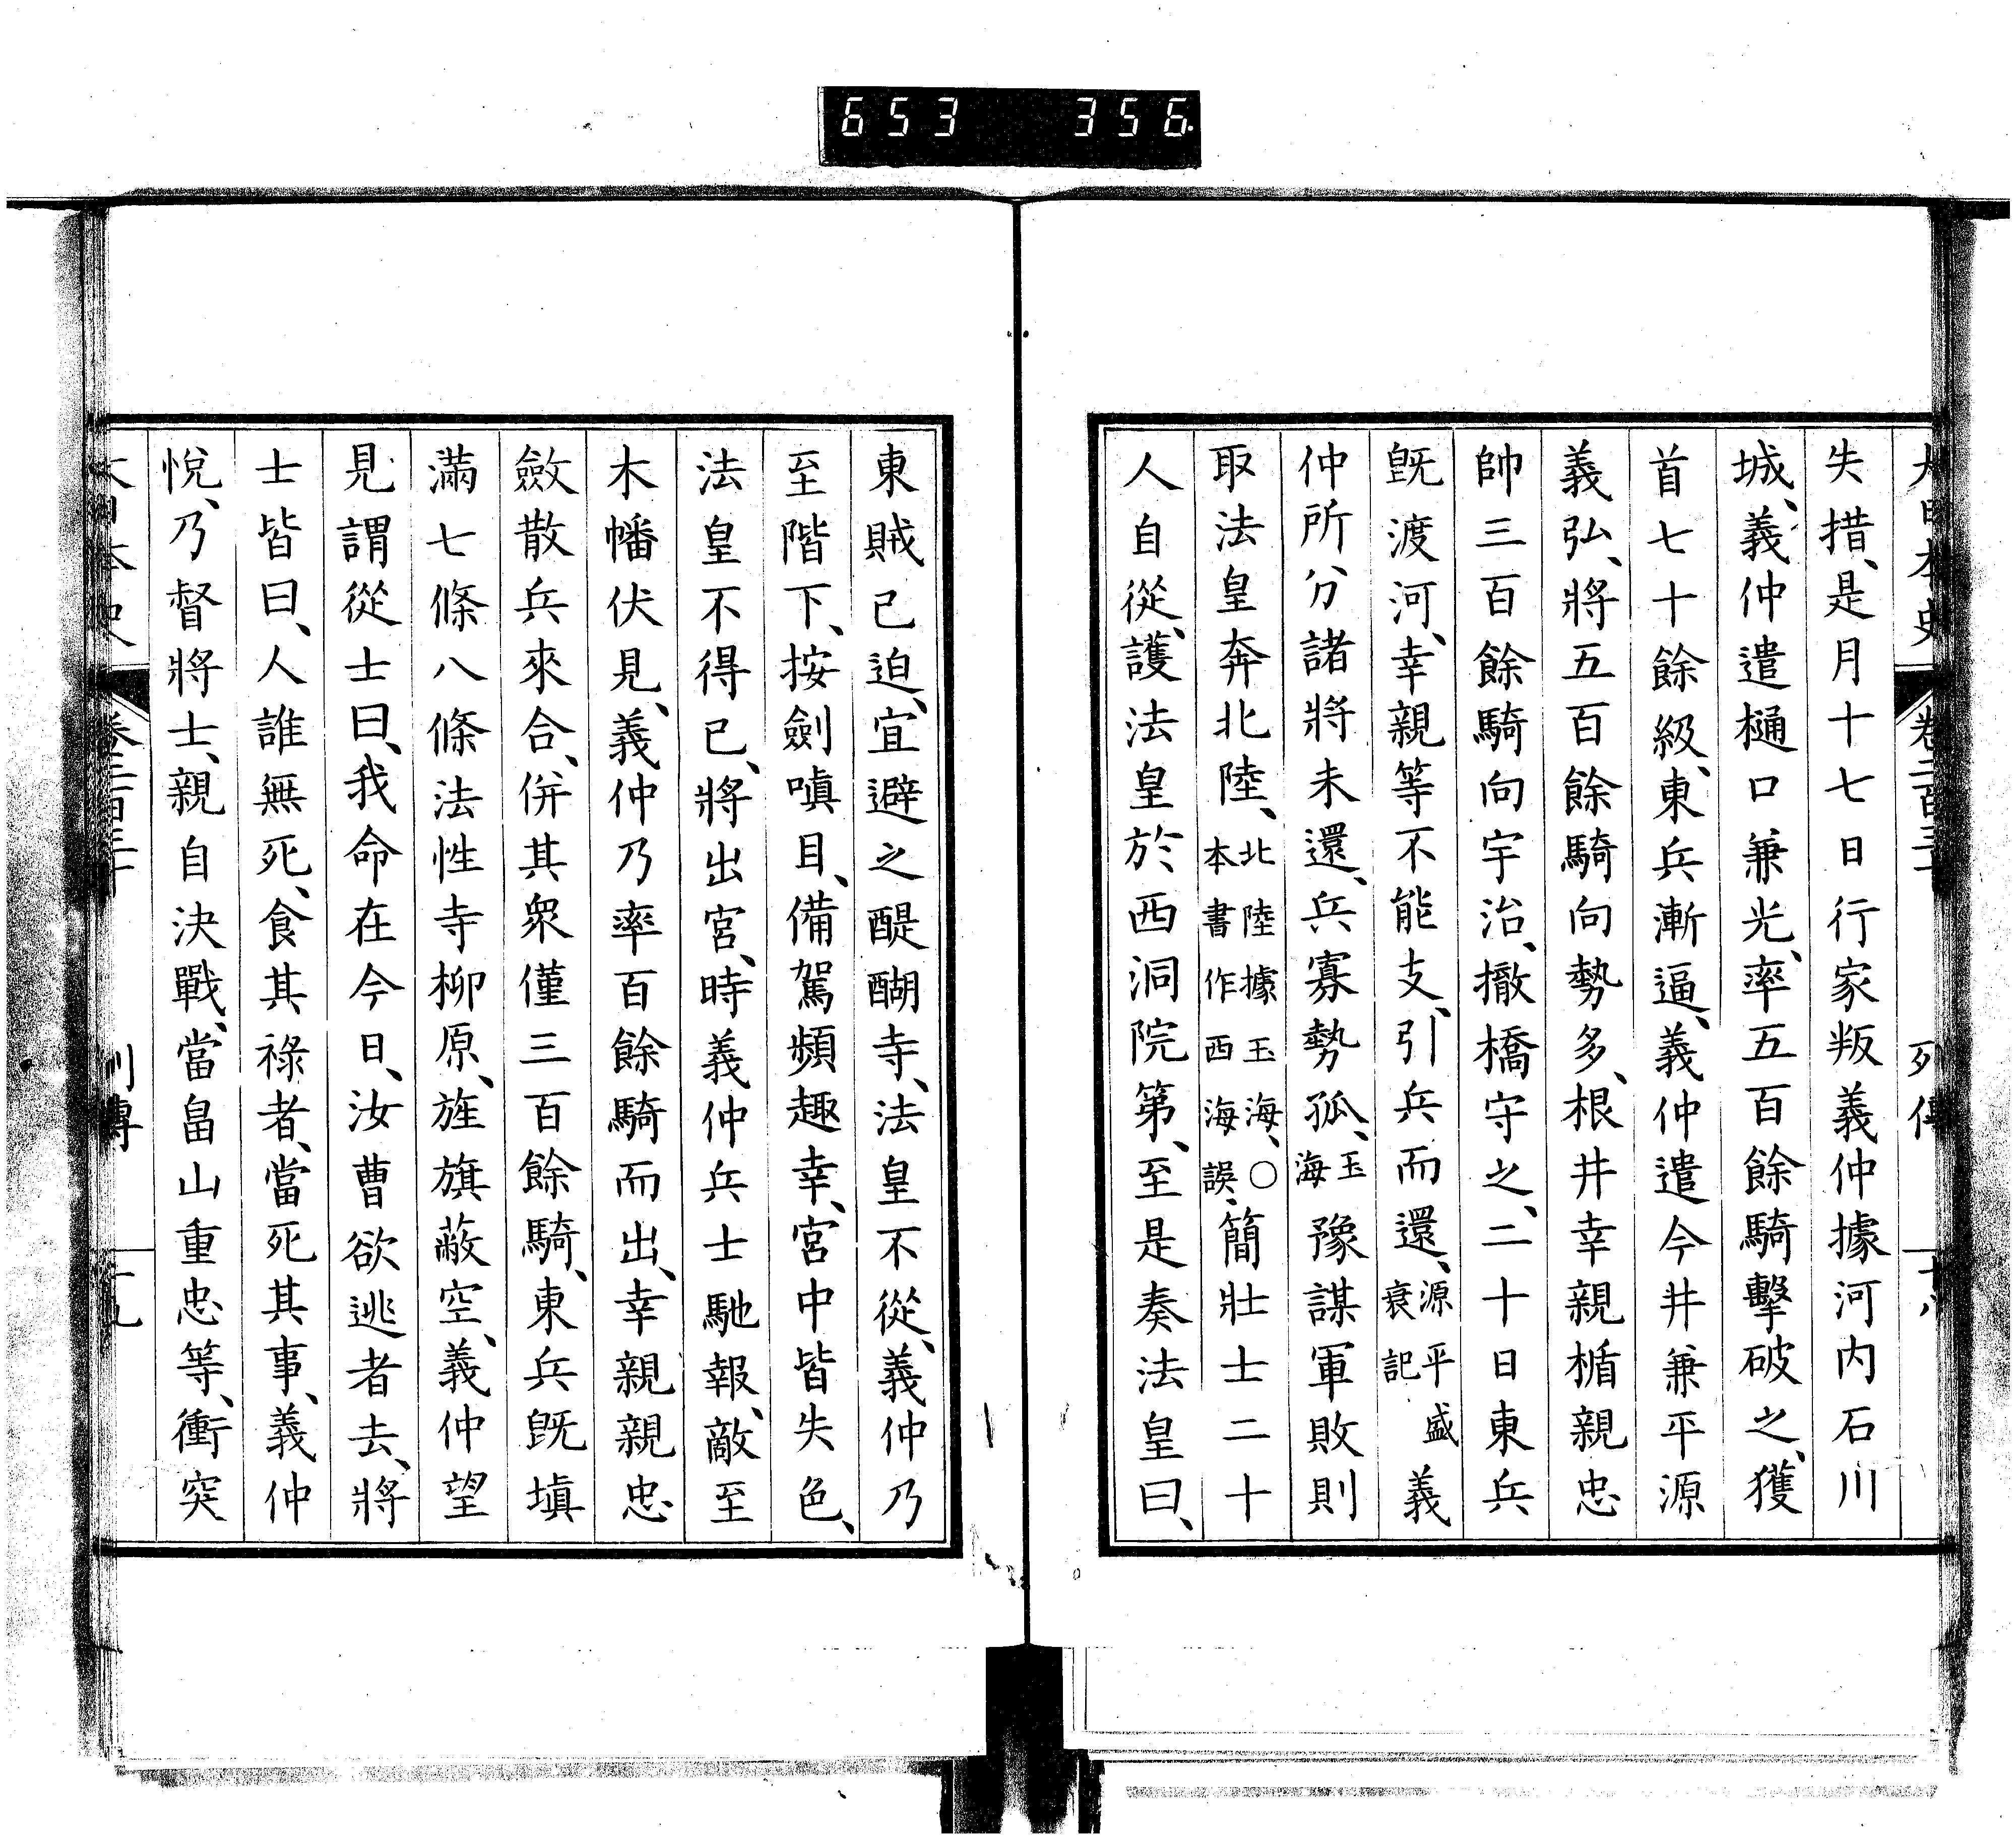 653 356.
大日本史 卷二百三十 列傳 十八
失措、是月十七日行家叛義仲據河內石川
城、義仲遣樋口兼光、率五百餘騎擊破之、獲
首七十餘級、東兵漸逼、義仲遣今井兼平源
義弘、將五百餘騎向勢多、根井幸親楯親忠
帥三百餘騎向宇治、撤橋守之、二十日東兵
旣渡河、幸親等不能支、引兵而還、源平盛衰記義
仲所分諸將未還、兵寡勢孤、玉海豫謀軍敗則
取法皇奔北陸、北陸據玉海、○本書作西海誤、簡壯士二十
人自從、護法皇於西洞院第、至是奏法皇曰、
東賊已迫、宜避之醍醐寺、法皇不從、義仲乃
至階下、按劍嗔目、備駕頻趣幸、宮中皆失色、
法皇不得已、將出宮、時義仲兵士馳報、敵至
木幡伏見、義仲乃率百餘騎而出、幸親親忠
斂散兵來合、倂其衆僅三百餘騎、東兵旣塡
滿七條八條法性寺柳原、旌旗蔽空、義仲望
見謂從士曰、我命在今日、汝曹欲逃者去、將
士皆曰、人誰無死、食其祿者、當死其事、義仲
悅、乃督將士、親自決戰、當畠山重忠等、衝突
大日本史 卷二百三十 列傳 十九